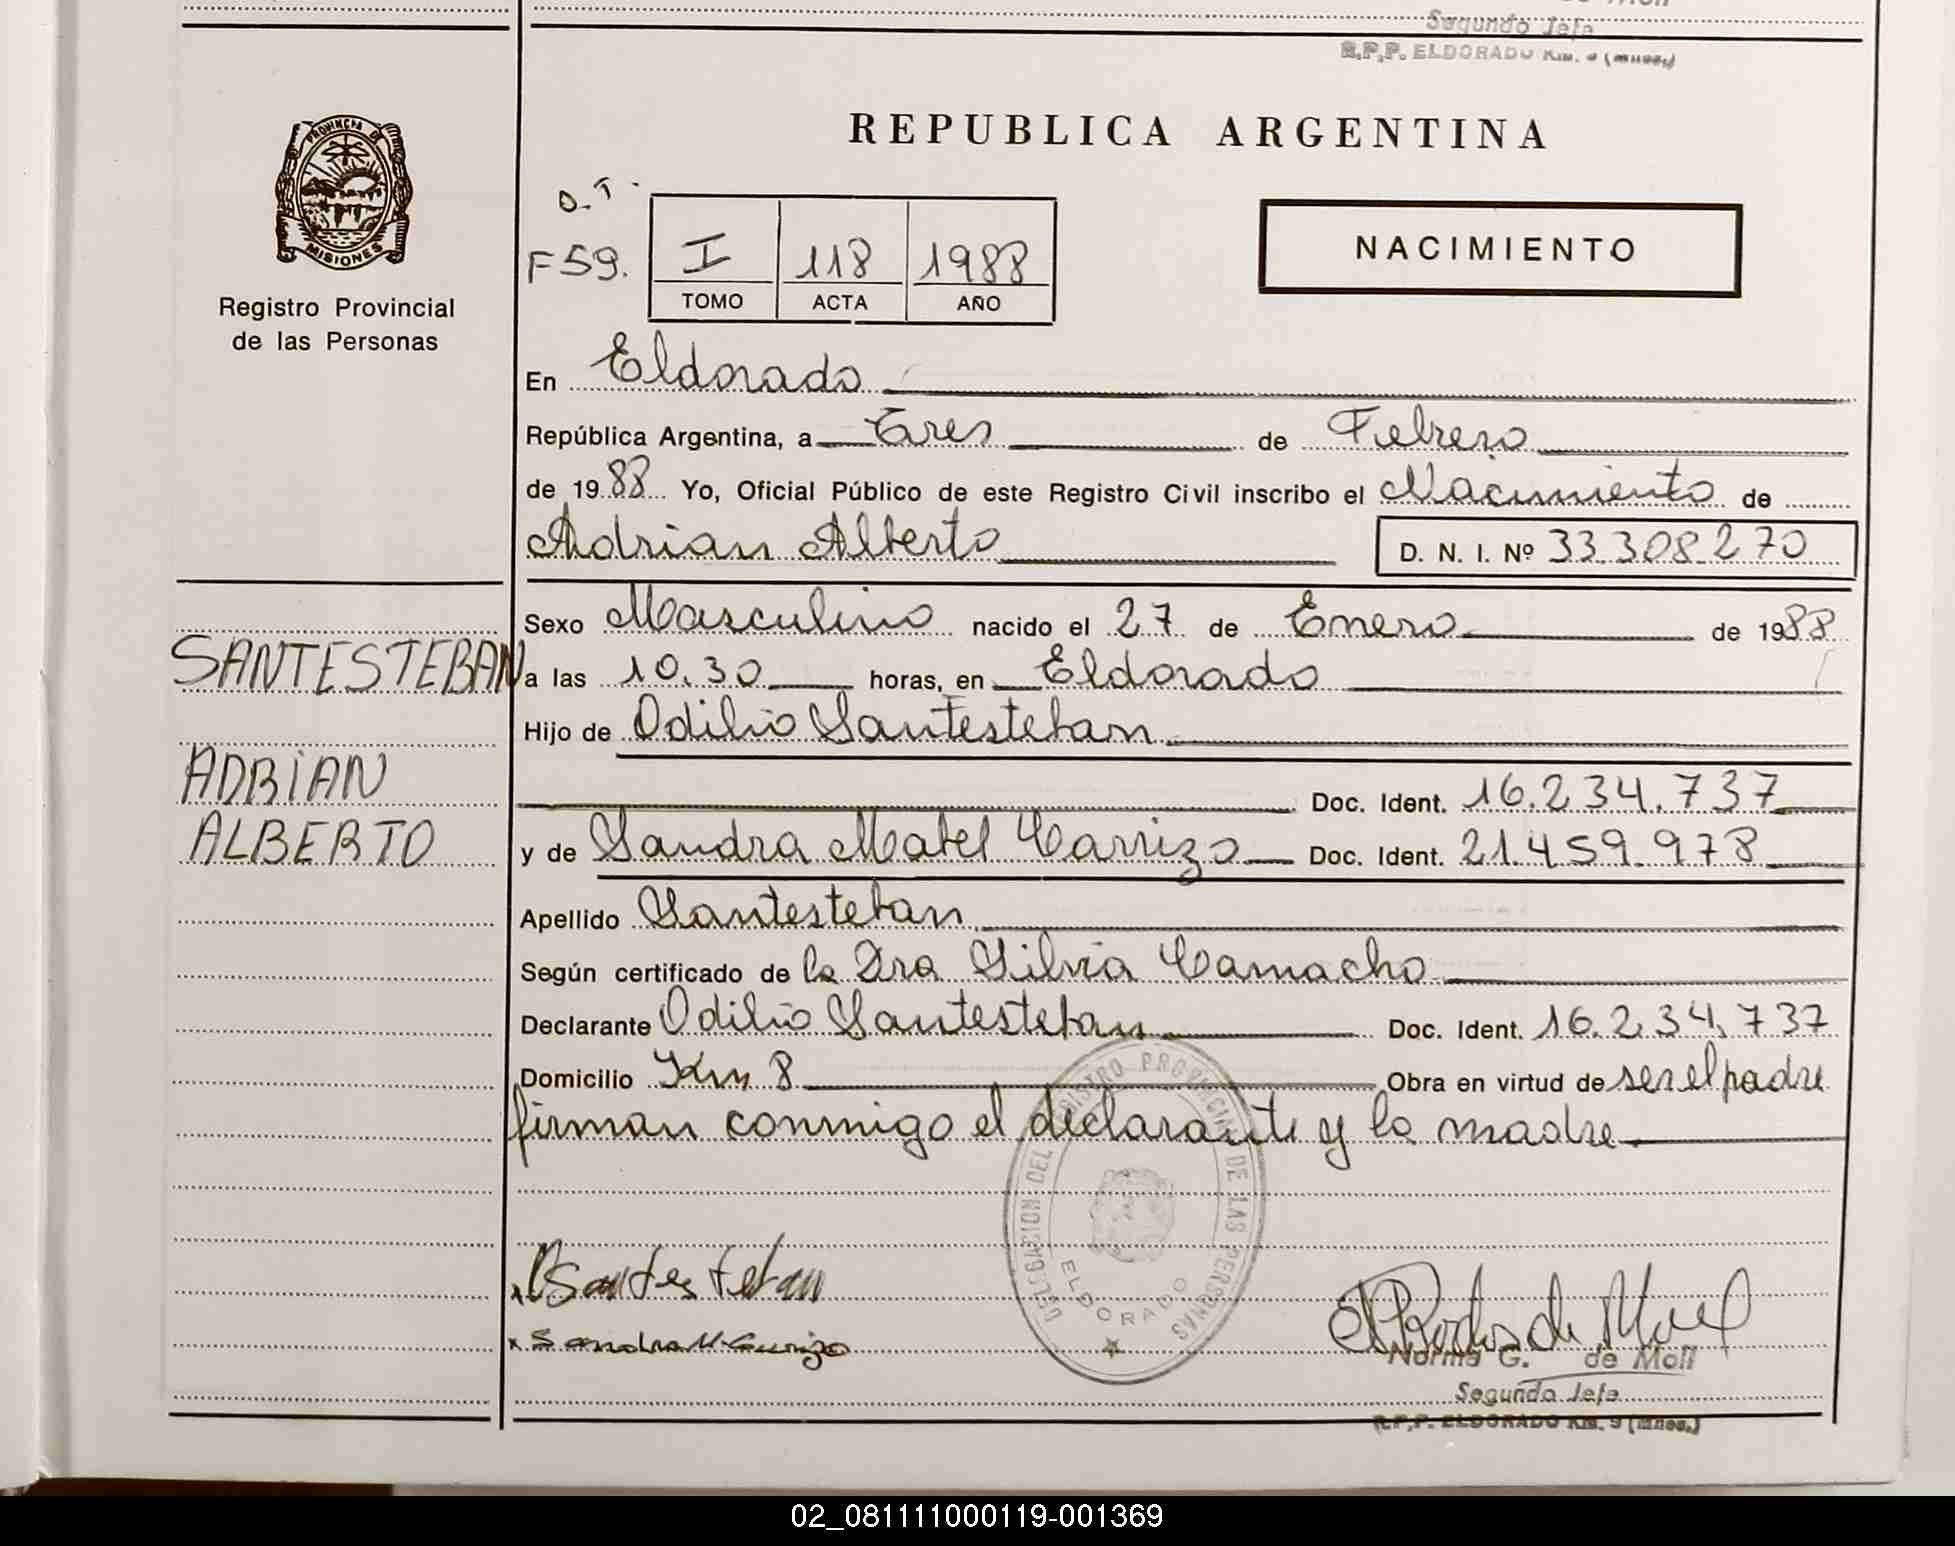 Segundo Jefe
R.P.P. ELDORADO Km. 9 (Mnes.)
PROVINCIA DE
MISIONES
Registro Provincial
de las Personas
REPUBLICA ARGENTINA
D.T.
F59.
I 118 1988
TOMO ACTA AÑO
NACIMIENTO
En Eldorado
República Argentina, a Tres de Febrero
de 1988 Yo, Oficial Público de este Registro Civil inscribo el Nacimiento de
Adrian Alberto D. N. I. Nº 33.308.270
Sexo Masculino nacido el 27 de Enero de 1988
SANTESTEBAN
a las 10.30 horas, en Eldorado
Hijo de Odilio Santesteban
ADRIAN
Doc. Ident. 16.234.737
ALBERTO
y de Sandra Mabel Carrizo Doc. Ident. 21.459.978
Apellido Santesteban
Según certificado de la Dra Silvia Camacho
Declarante Odilio Santesteban Doc. Ident. 16.234.737
Domicilio Km 8 Obra en virtud de ser el padre
firman conmigo el declarante y la madre
DELEGACION DEL REGISTRO PROVINCIAL DE LAS PERSONAS
ELDORADO
Santesteban
x Sandra M. Carrizo
Norma G. de Moll
Segundo Jefe
R.P.P. ELDORADO Km. 9 (Mnes.)
02_081111000119-001369